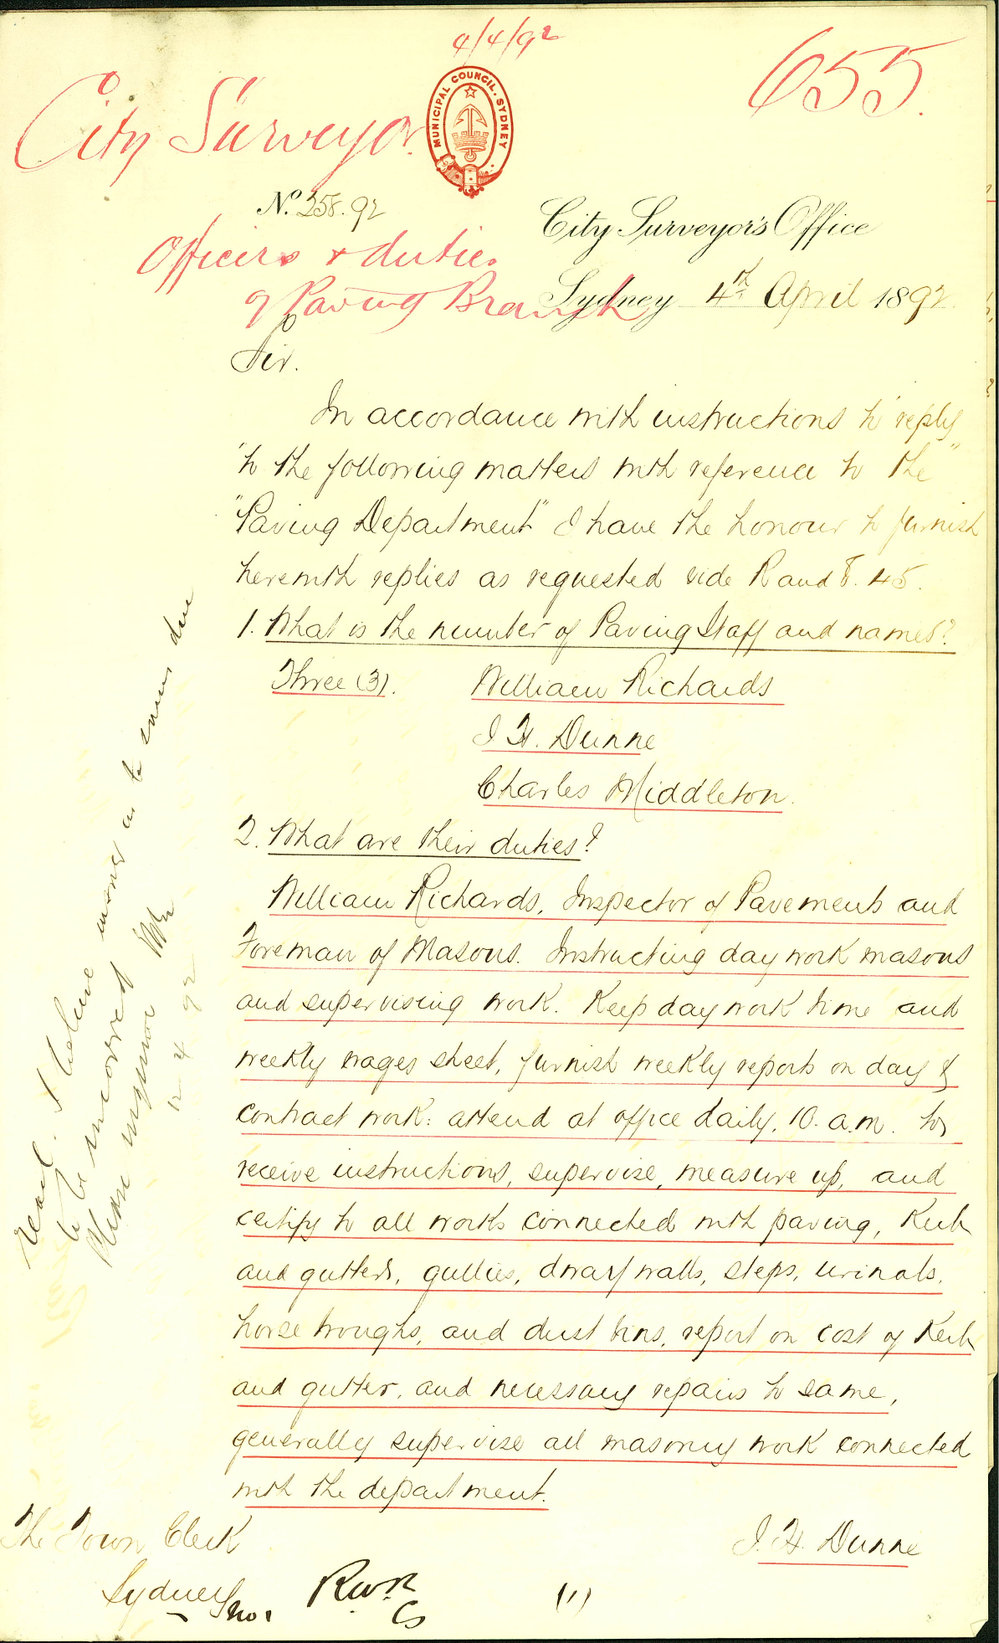 4/4/92
655.
City Surveyor.
MUNICIPAL COUNCIL. SYDNEY
No. 258.92
City Surveyor's Office
Officers & duties
of Paving Branch
Sydney 4th April 1892
Sir.
In accordance with instructions to "reply
"to the following matters with reference to the"
"Paving Department" I have the honour to furnish
herewith replies as requested vide R and S. 45.
1. What is the number of Paving Staff and names?
Three (3). William Richards
J H. Dunne
Charles Middleton.
2. What are their duties?
William Richards. Inspector of Pavements and
Foreman of Masons. Instructing day work masons
and supervising work. Keep day work time and
weekly wages sheet, furnish weekly reports on day &
contract work: attend at office daily, 10. a.m. to
receive instructions, supervise, measure up, and
certify to all works connected with paving, Kerb
and gutters, gullies, dwarf walls, steps, urinals,
horse troughs, and dust bins, report on cost of Kerb
and gutter, and necessary repairs to same,
generally supervise all masonry work connected
with the department.
J. H. Dunne
The Town Clerk
Sydney
(1)
Read. I believe
to be incorrect
Please
12 4 92